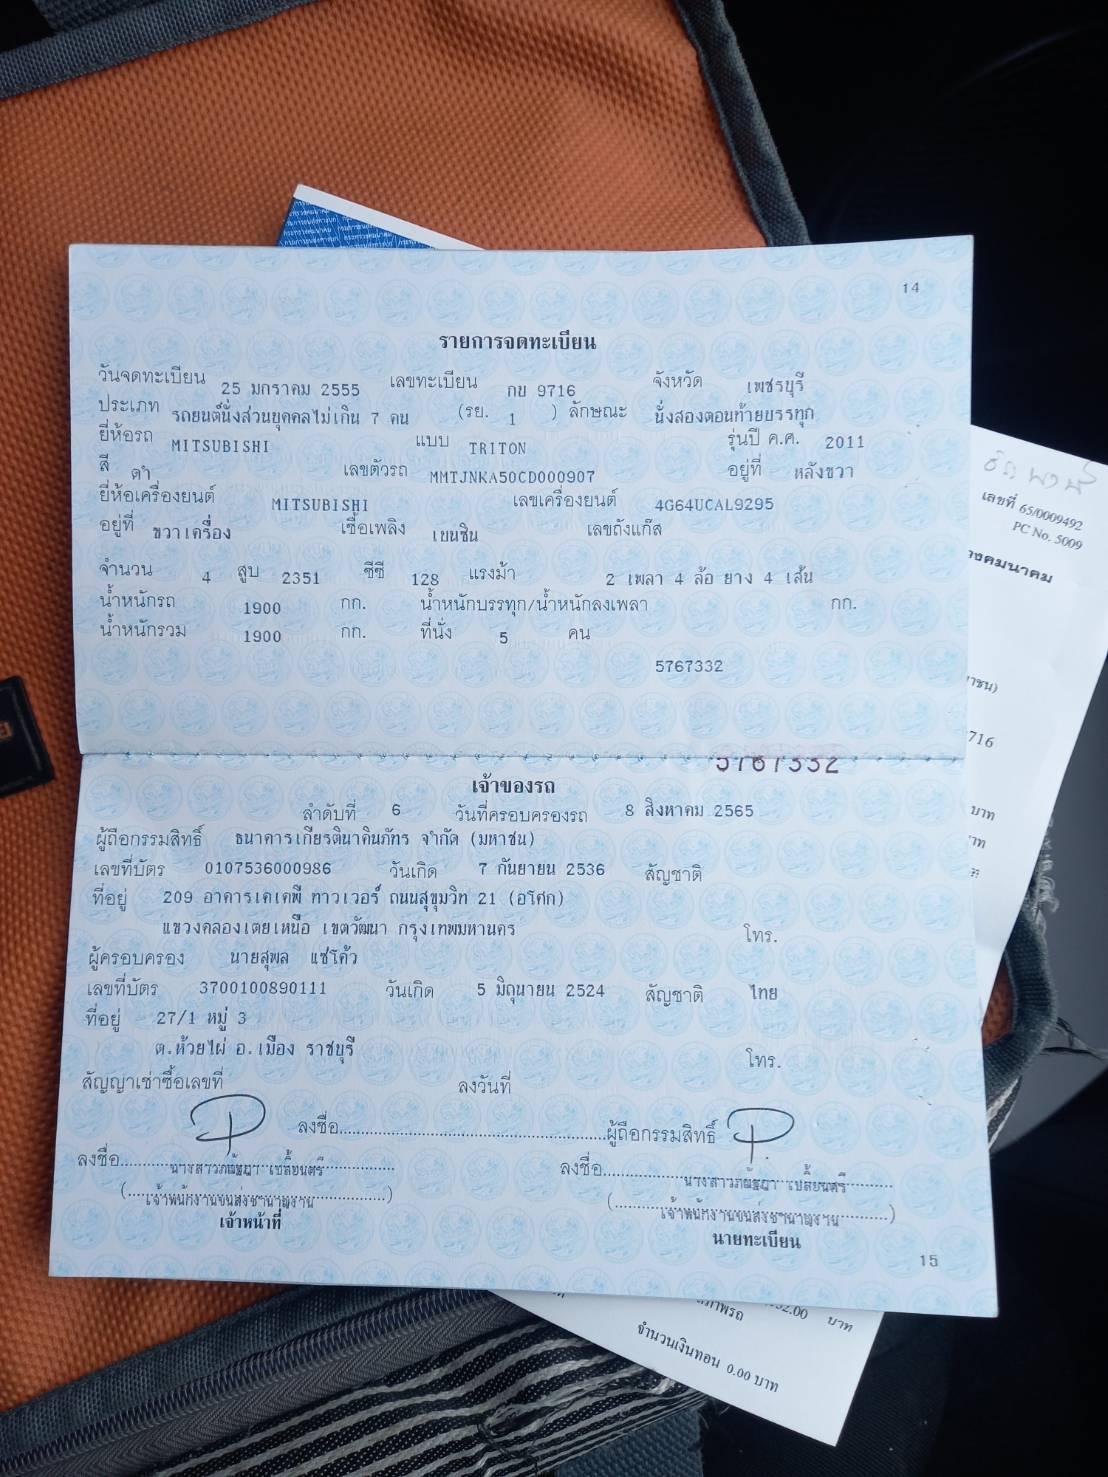 14
รายการจดทะเบียน
วันจดทะเบียน 25 มกราคม 2555 เลขทะเบียน กบ 9716 จังหวัด เพชรบุรี
ประเภท รถยนต์นั่งส่วนบุคคลไม่เกิน 7 คน (รย. 1 ) ลักษณะ นั่งสองตอนท้ายบรรทุก
ยี่ห้อรถ MITSUBISHI แบบ TRITON รุ่นปี ค.ศ. 2011
สี ดำ เลขตัวรถ MMTJNKA50CD000907 อยู่ที่ หลังขวา
ยี่ห้อเครื่องยนต์ MITSUBISHI เลขเครื่องยนต์ 4G64UCAL9295
อยู่ที่ ขวาเครื่อง เชื้อเพลิง เบนซิน เลขถังแก๊ส
จำนวน 4 สูบ 2351 ซีซี 128 แรงม้า 2 เพลา 4 ล้อ ยาง 4 เส้น
น้ำหนักรถ 1900 กก. น้ำหนักบรรทุก/น้ำหนักลงเพลา กก.
น้ำหนักรวม 1900 กก. ที่นั่ง 5 คน
5767332
5767332
เจ้าของรถ
ลำดับที่ 6 วันที่ครอบครองรถ 8 สิงหาคม 2565
ผู้ถือกรรมสิทธิ์ ธนาคารเกียรตินาคินภัทร จำกัด (มหาชน)
เลขที่บัตร 0107536000986 วันเกิด 7 กันยายน 2536 สัญชาติ
ที่อยู่ 209 อาคารเคเคพี ทาวเวอร์ ถนนสุขุมวิท 21 (อโศก)
แขวงคลองเตยเหนือ เขตวัฒนา กรุงเทพมหานคร โทร.
ผู้ครอบครอง นายสุพล แซ่โค้ว
เลขที่บัตร 3700100890111 วันเกิด 5 มิถุนายน 2524 สัญชาติ ไทย
ที่อยู่ 27/1 หมู่ 3
ต.ห้วยไผ่ อ.เมือง ราชบุรี โทร.
สัญญาเช่าซื้อเลขที่ ลงวันที่
ลงชื่อ ผู้ถือกรรมสิทธิ์
ลงชื่อ นางสาวภณัฐฎา เปลี้ยนศรี ลงชื่อ นางสาวภณัฐฎา เปลี้ยนศรี
(เจ้าพนักงานขนส่งชำนาญงาน) (เจ้าพนักงานขนส่งชำนาญงาน)
เจ้าหน้าที่ นายทะเบียน
15
เลขที่ 65/0009492
PC No. 5009
คมนาคม
าชน)
716
บาท
บาท
จำนวนเงินทอน 0.00 บาท